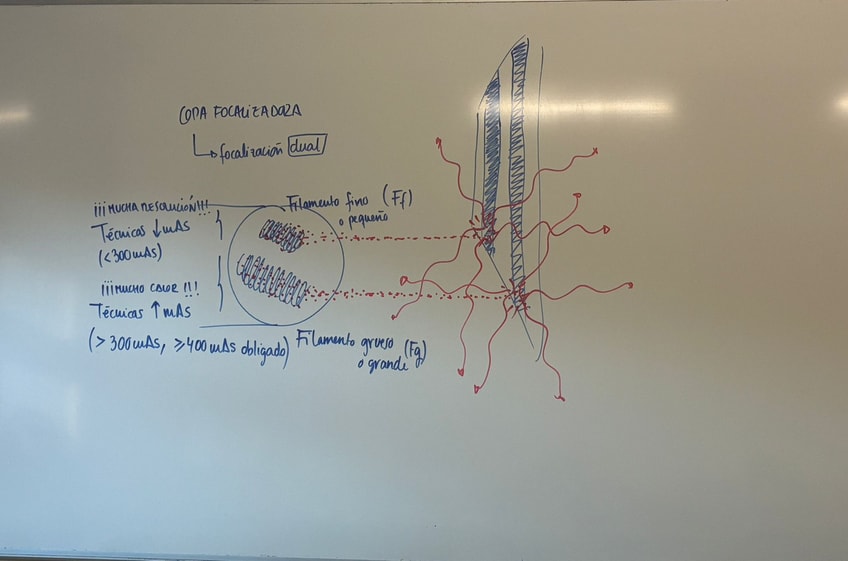 COPA FOCALIZADORA
focalización dual
¡¡¡MUCHA RESOLUCIÓN!!!
Técnicas ↓mAs
(<300mAs)
Filamento fino (Ff)
o pequeño
¡¡¡MUCHO CALOR!!!
Técnicas ↑mAs
(>300mAs, ≥400mAs obligado)
Filamento grueso (Fg)
o grande